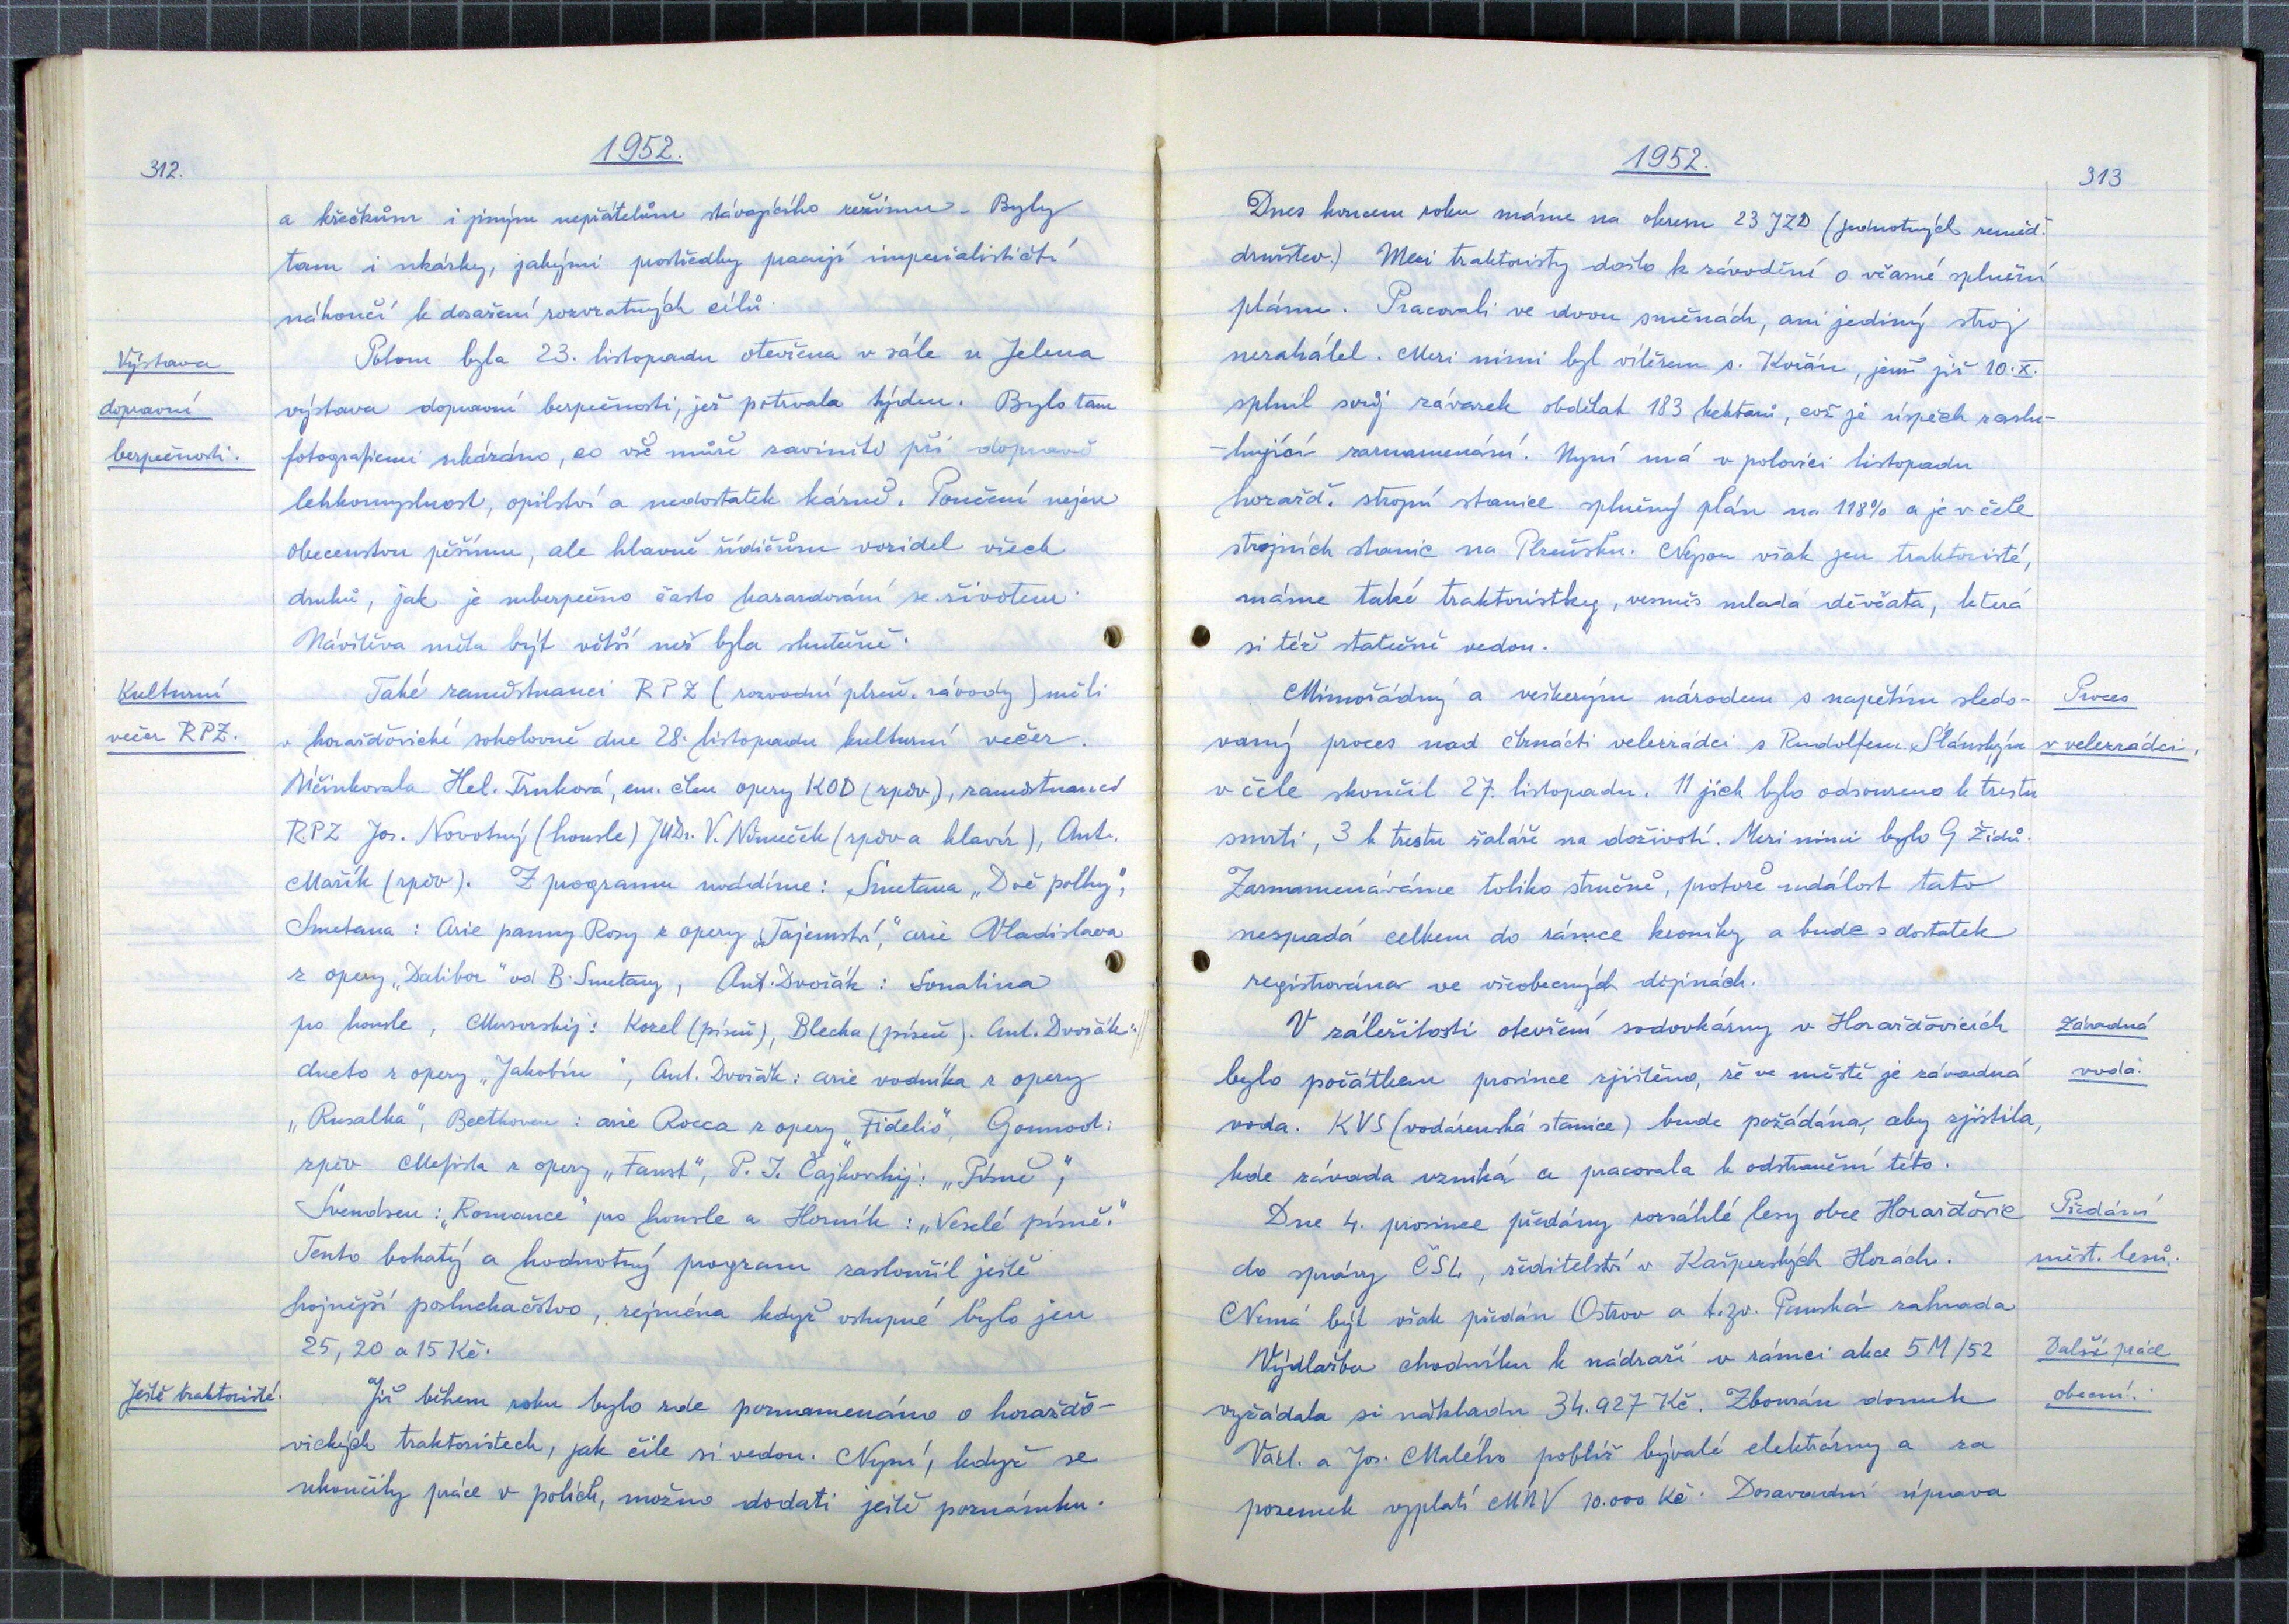 312.
1952.
a křečkům i jiným nepřátelům stávajícího režimu. Byly
tam i ukázky, jakými prostředky pracují imperialističtí
náhončí k dosažení rozvratných cílů.
Výstava
dopravní
bezpečnosti.
Potom byla 23. listopadu otevřena v sále u Jelena
výstava dopravní bezpečnosti, jež potrvala týden. Bylo tam
fotografiemi ukázáno, co vše může zaviniti při dopravě
lehkomyslnost, opilství a nedostatek kázně. Poučení nejen
obecenstvu pěšímu, ale hlavně řidičům vozidel všech
druhů, jak je nebezpečno často hazardování se životem.
Návštěva měla být větší než byla skutečně.
Kulturní
večer RPZ.
Také zaměstnanci RPZ (rozvodní plzeň. závody) měli
v horažďovické sokolovně dne 28. listopadu kulturní večer.
Účinkovala Hel. Trnková, em. člen opery KOD (zpěv), zaměstnanci
RPZ Jos. Novotný (housle) JUDr. V. Němeček (zpěv a klavír), Ant.
Mařík (zpěv). Z programu uvádíme: Smetana „Dvě polky",
Smetana: Arie panny Rozy z opery „Tajemství," arie Vladislava
z opery „Dalibor" od B. Smetany, Ant. Dvořák: Sonatina
pro housle, Musorskij: Kozel (píseň), Blecha (píseň). Ant. Dvořák:
dueto z opery „Jakobín", Ant. Dvořák: arie vodníka z opery
„Rusalka", Beethoven: arie Rocca z opery „Fidelio", Gounod:
zpěv Mefista z opery „Faust", P. I. Čajkovskij: „Písně",
Svendsen: „Romance" pro housle a Horník: „Veselé písně."
Tento bohatý a hodnotný program zasloužil ještě
hojnější posluchačstvo, zejména když vstupné bylo jen
25, 20 a 15 Kč.
Ještě traktoristé.
Již během roku bylo zde poznamenáno o horažďo-
vických traktoristech, jak čile si vedou. Nyní, když se
ukončily práce v polích, možno dodati ještě poznámku.
1952.
313
Dnes koncem roku máme na okresu 23 JZD (jednotných zeměd.
družstev.) Mezi traktoristy došlo k závodění o včasné splnění
plánu. Pracovali ve dvou směnách, ani jediný stroj
nezahálel. Mezi nimi byl vítězem s. Kořán, jenž již 20.X.
splnil svůj závazek obdělat 183 hektarů, což je úspěch zaslu-
-hující zaznamenání. Nyní má v polovici listopadu
horažď. strojní stanice splněný plán na 118% a je v čele
strojních stanic na Plzeňsku. Nejsou však jen traktoristé,
máme také traktoristky, vesměs mladá děvčata, která
si též statečně vedou.
Mimořádný a veškerým národem s napětím sledo-
vaný proces nad čtrnácti velezrádci s Rudolfem Slánským
v čele skončil 27. listopadu. 11 jich bylo odsouzeno k trestu
smrti, 3 k trestu žaláře na doživotí. Mezi nimi bylo 9 Židů.
Zaznamenáváme toliko stručně, protože událost tato
nespadá celkem do rámce kroniky a bude s dostatek
registrována ve všeobecných dějinách.
Proces
v velezrádci.
V záležitosti otevření sodovkárny v Horažďovicích
bylo počátkem prosince zjištěno, že ve městě je závadná
voda. KVS (vodárenská stanice) bude požádána, aby zjistila,
kde závada vzniká a pracovala k odstranění této.
Závadná
voda.
Dne 4. prosince předány rozsáhlé lesy obce Horažďovic
do správy ČSL, ředitelství v Kašperských Horách.
Nemá být však předán Ostrov a t.zv. Panská zahrada
Předání
měst. lesů.
Výdlažba chodníku k nádraží v rámci akce 5M/52
vyžádala si nákladu 34.927 Kč. Zbourán domek
Václ. a Jos. Malého poblíž bývalé elektrárny a za
pozemek vyplatí MNV 10.000 Kč. Dosavadní úprava
Další práce
obecní.